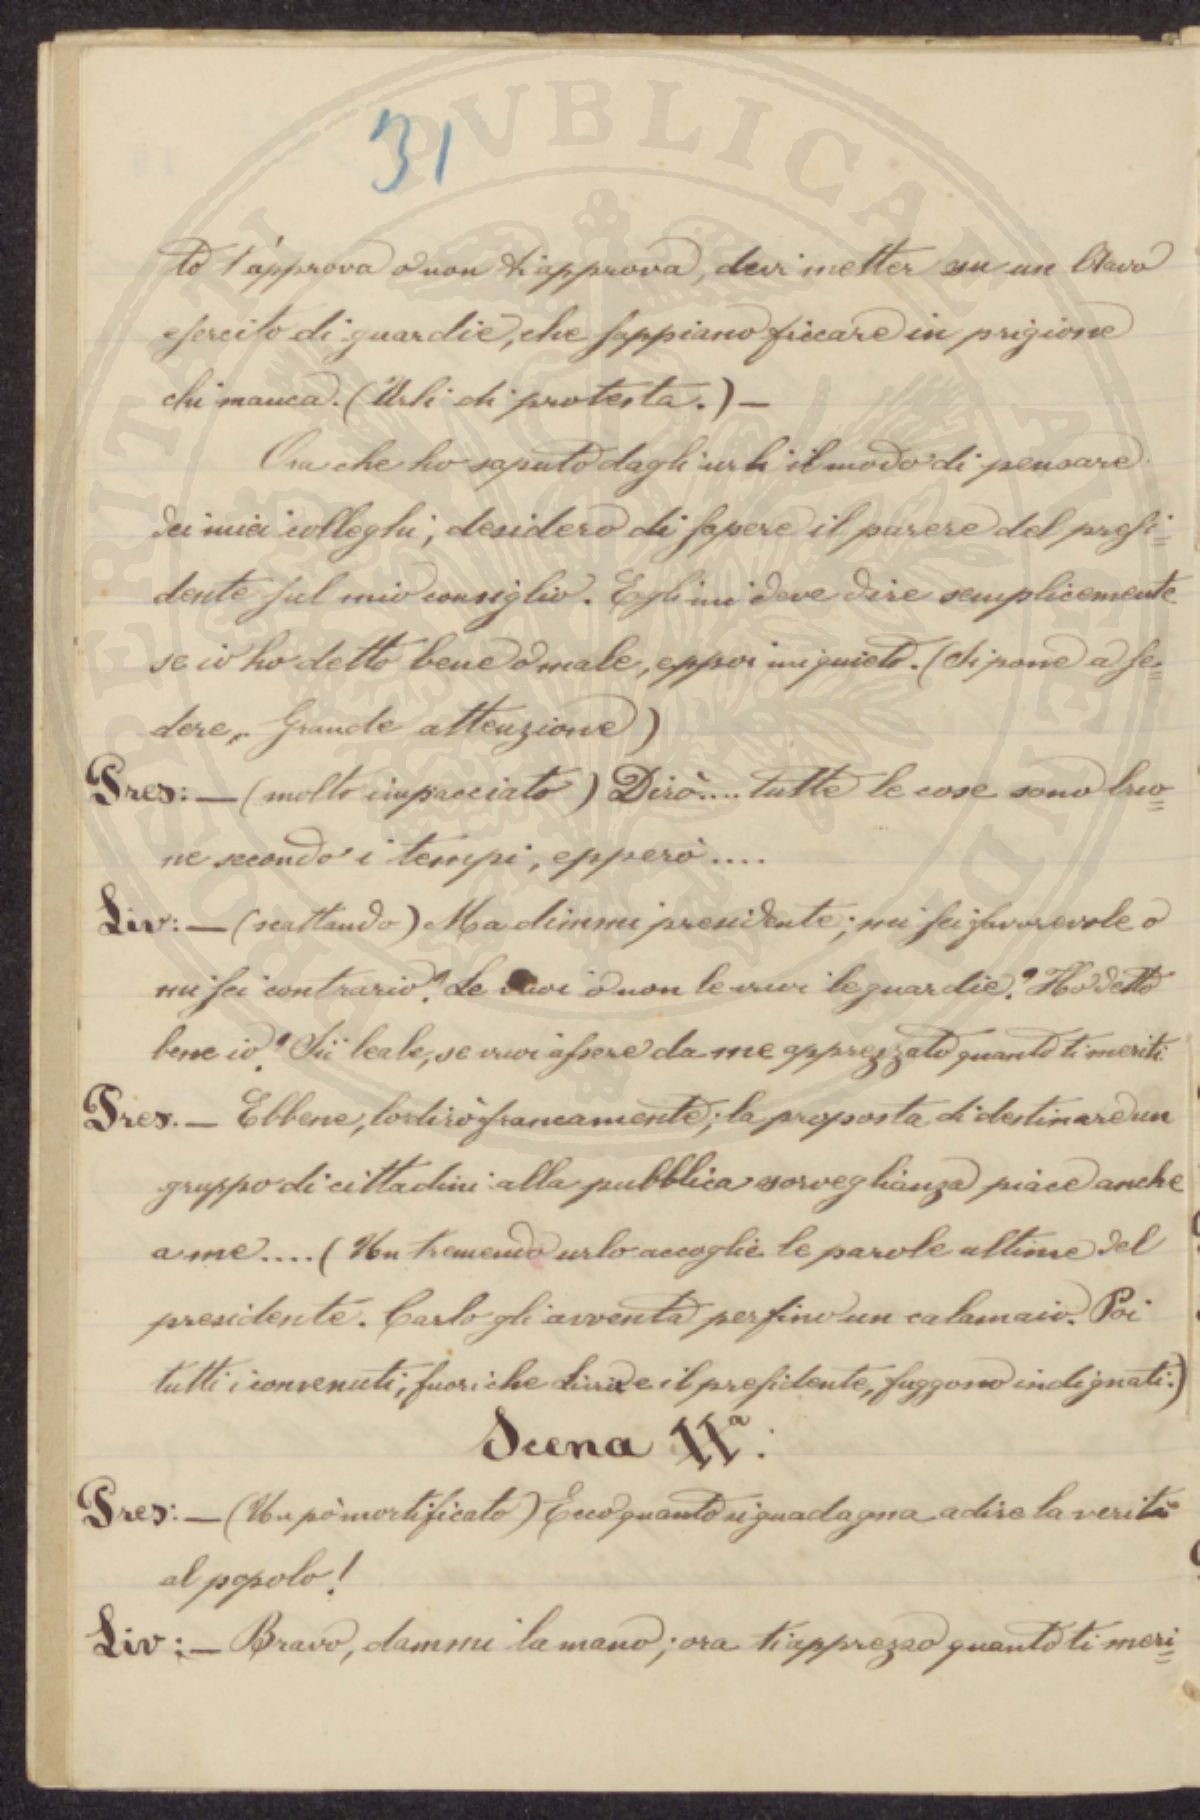 31
to t'approva o non ti approva, devi metter su un bravo
esercito di guardie, che sappiano ficcare in prigione
chi manca. (Urli di protesta.) —
Ora che ho saputo dagli urli il modo di pensare
dei miei colleghi, desidero di sapere il parere del presi=
dente sul mio consiglio. Egli mi deve dire semplicemente
se io ho detto bene o male, eppoi mi quieto. (Si pone a se=
dere, Grande attenzione)
Pres: — (molto impacciato) Dirò.... tutte le cose sono buo=
ne secondo i tempi, epperò....
Liv: — (scattando) Ma dimmi presidente; mi sei favorevole o
mi sei contrario? Le vuoi o non le vuoi le guardie? Ho detto
bene io? Sii leale, se vuoi essere da me apprezzato quanto ti meriti.
Pres. — Ebbene, lo dirò francamente; la proposta di destinare un
gruppo di cittadini alla pubblica sorveglianza piace anche
a me.... (Un tremendo urlo accoglie le parole ultime del
presidente. Carlo gli avventa perfino un calamaio. Poi
tutti i convenuti, fuori che Livio e il presidente, fuggono indignati.)
Scena IIª.
Pres: — (Un pò mortificato) Ecco quanto si guadagna a dire la verità
al popolo!
Liv: — Bravo, dammi la mano; ora ti apprezzo quanto ti meri=
PVBLICAE